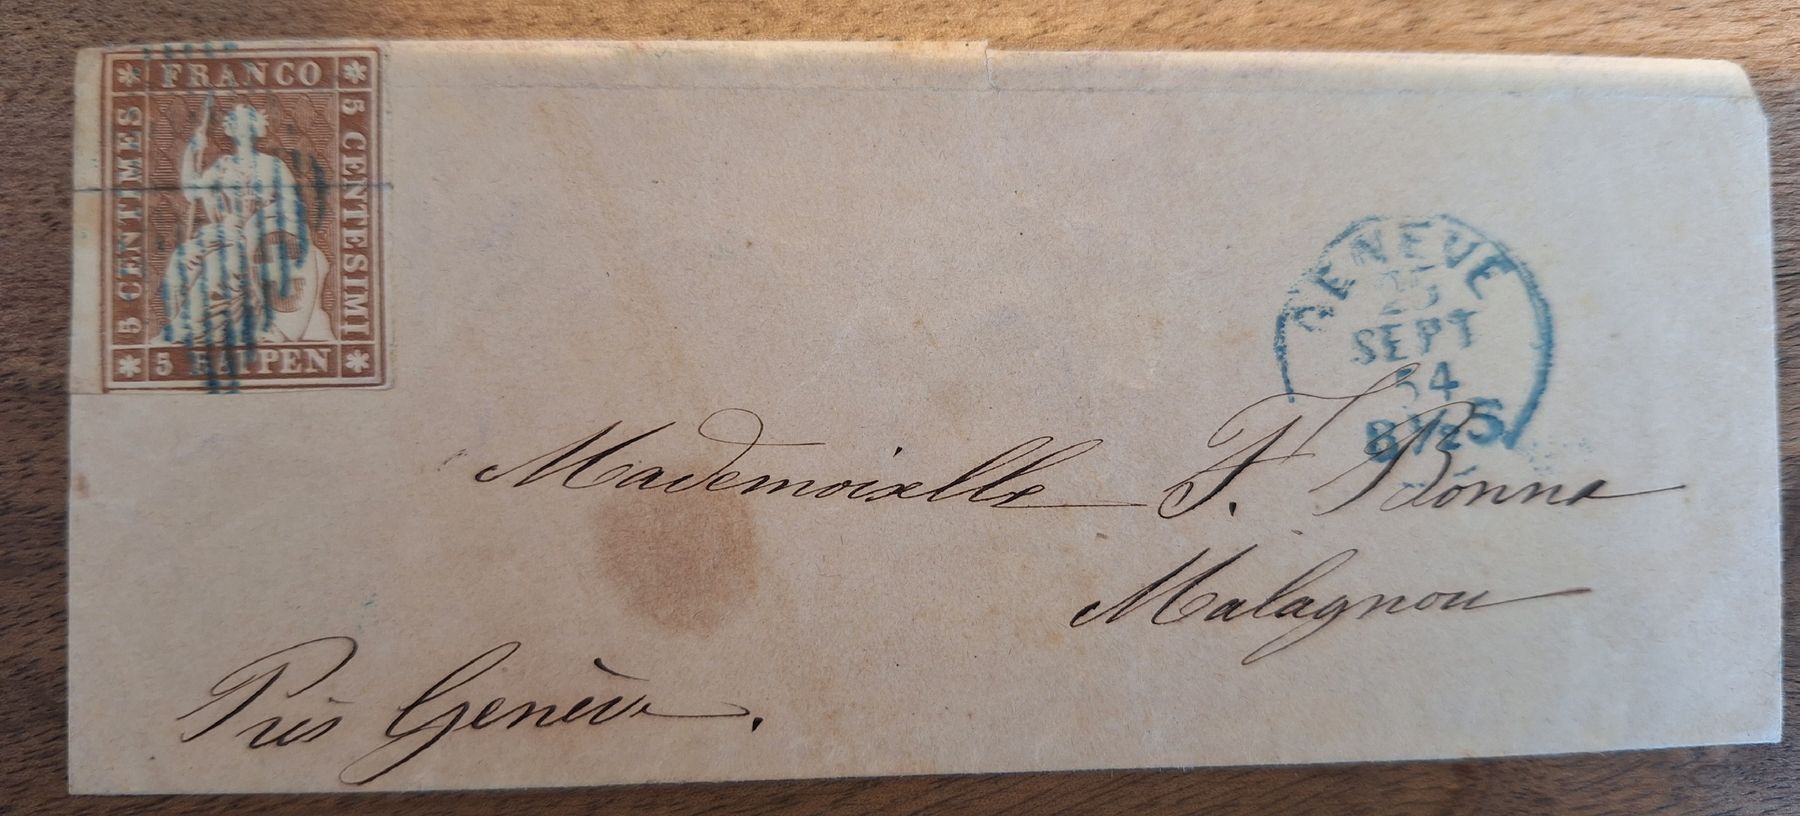 FRANCO
5 CENTIMES
5 CENTESIMI
5 RAPPEN
GENEVE
25
SEPT
54
Mademoiselle F. Bonna
Malagnou
Près Genève.